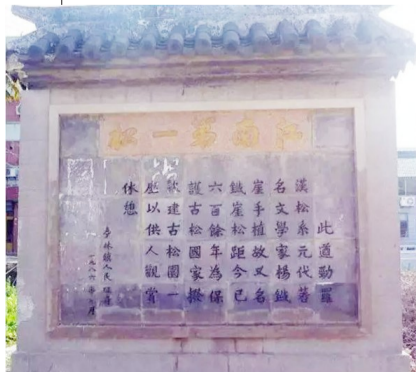 江南第一松
此遒勁羅
漢松系元代著
名文學家楊鐵
崖手植故又名
鐵崖松距今已
六百餘年為保
護古松國家撥
款建古松園一
座以供人觀賞
休憩
亭林鎮人民政府
一九八六年月